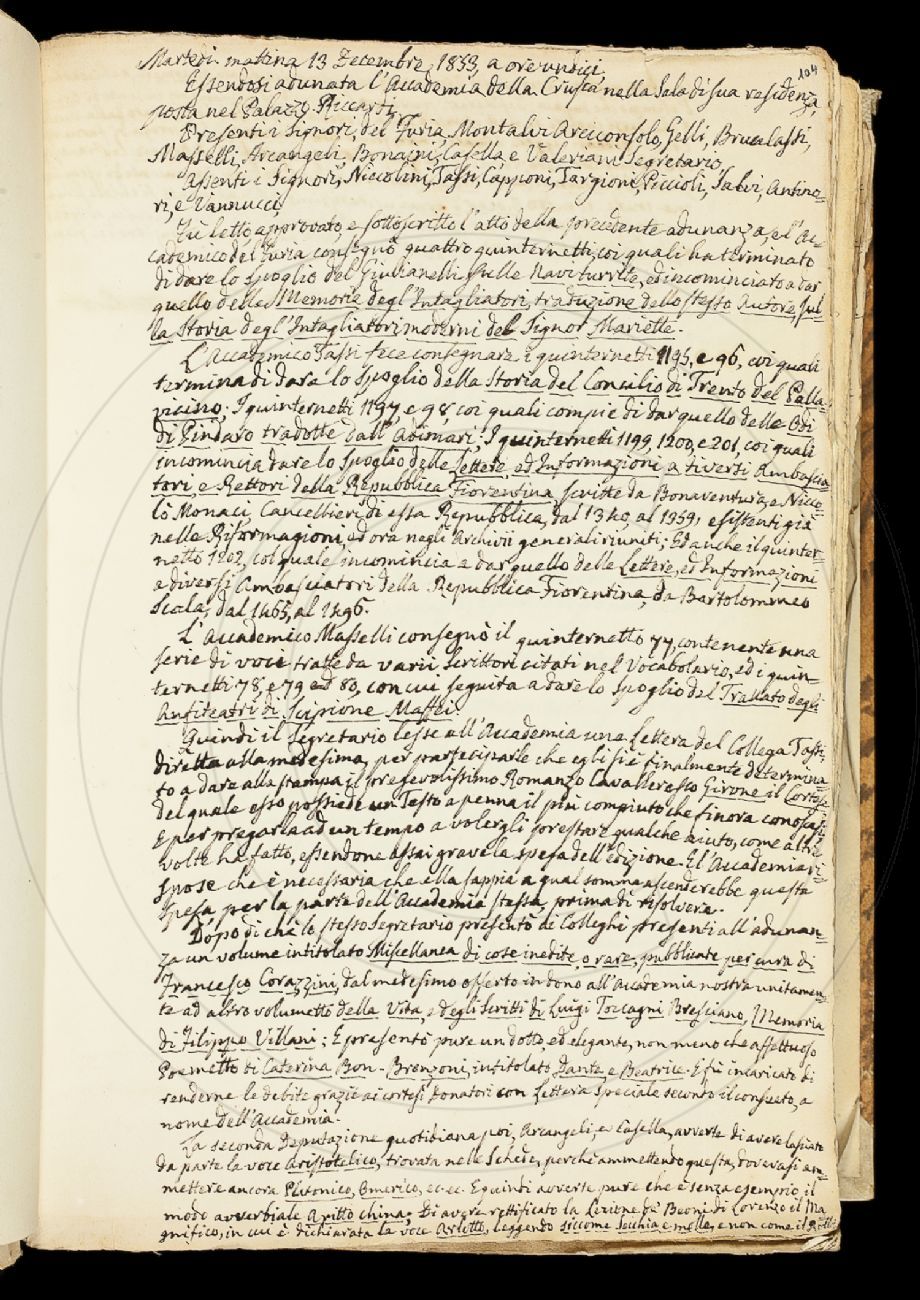 104
Martedì mattina 13 Decembre 1853, a ore undici,
Essendosi adunata l'Accademia della Crusca nella Sala di sua residenza,
posta nel Palazzo Riccardi,
Presenti i Signori, Del Furia, Montalvi Arciconsolo, Gelli, Brucalassi,
Masselli, Arcangeli, Bonaini, Casella, e Valeriani Segretario,
Assenti i Signori, Niccolini, Tassi, Capponi, Targioni, Piccioli, Salvi, Antino=
ri, e Vannucci,
Fù letto, approvato, e sottoscritto l'atto della precedente adunanza, e l'Ac=
cademico Del Furia consegnò quattro quinternetti, coi quali ha terminato
di dare lo spoglio del Giulianelli sulle Navi turrite, ed incominciato a dar
quello delle Memorie degl'Intagliatori, traduzione dello stesso Autore, sul=
la Storia degl'Intagliatori moderni del Signor Mariette.
L'Accademico Tassi fece consegnare i quinternetti 1195, e 96, coi quali
termina di dare lo spoglio della Storia del Concilio di Trento del Palla=
vicino; I quinternetti 1197 e 98, coi quali compie di dar quello delle Odi
di Pindaro tradotte dall'Adimari; I quinternetti 1199, 1200, e 201, coi quali
incomincia dare lo spoglio delle Lettere, ed Informazioni a diversi Ambascia=
tori, e Rettori della Repubblica Fiorentina scritte da Bonaventura, e Nicco=
lò Monaci, Cancellieri di essa Repubblica, dal 1340, al 1359, esistenti già
nelle Riformagioni, ed ora negli Archivii generali riuniti; Ed anche il quinter=
netto 1202, col quale incomincia a dar quello delle Lettere, ed Informazioni
a diversi Ambasciatori della Repubblica Fiorentina, da Bartolommeo
Scala, dal 1465, al 1496.
L'Accademico Masselli consegnò il quinternetto 77, contenente una
serie di voci tratte da varii Scrittori citati nel Vocabolario, ed i quin=
ternetti 78, e 79 ed 80, con cui seguita a dare lo spoglio del Trattato degli
Anfiteatri di Scipione Maffei.
Quindi il Segretario lesse all'Accademia una Lettera del Collega Tassi,
diretta alla medesima, per parteciparle che egli si è finalmente determina=
to a dare alla stampa il pregevolissimo Romanzo Cavalleresco Girone il Cortese
del quale esso possiede un Testo a penna il più compiuto che finora conoscasi
E per pregarla ad un tempo a volergli prestare qualche aiuto, come altre
volte ha fatto, essendone assai grave la spesa dell'edizione. E l'Accademia ri=
spose che è necessaria che ella sappia a qual somma ascenderebbe questa
spesa, per la parte dell'Accademia stessa, prima di risolvere.
Dopo di che lo stesso Segretario presentò ai Colleghi presenti all'adunan=
za un volume intitolato Miscellanea di cose inedite, o rare, pubblicate per cura di
Francesco Corazzini, dal medesimo offerto in dono all'Accademia nostra unitamen=
te ad altro volumetto della Vita, e degli Scritti di Luigi Toccagni Bresciano, Memoria
di Filippo Villani; E presentò pure un dotto, ed elegante, non meno che affettuoso
Poemetto di Caterina Bon-Brenzoni, intitolato Dante, e Beatrice. E fù incaricato di
renderne le debite grazie ai cortesi Donatori con Lettera speciale secondo il consueto, a
nome dell'Accademia.
La seconda Deputazione quotidiana poi, Arcangeli, e Casella, avverte di avere lasciato
da parte la voce Aristotelico, trovata nelle Schede, perchè ammettendo questa, dovevasi am=
mettere ancora Platonico, Omerico, ec. ec. E quindi avverte pure che è senza esempio il
modo avverbiale A ritto china; Di avere rettificato la Lezione de' Beoni di Lorenzo il Ma
gnifico, in cui è dichiarata la voce Arlotto, leggendo siccome secchia e molle, e non come il